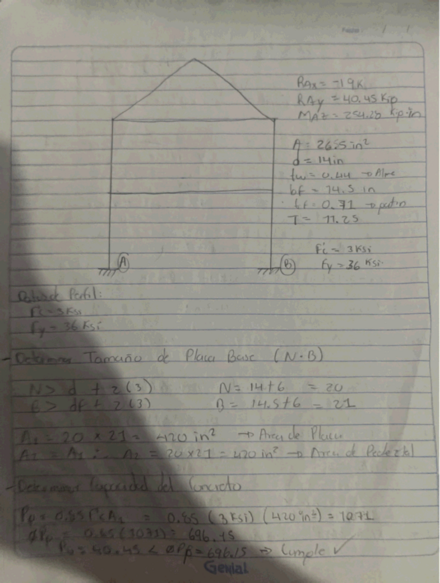 RAx = -19K
RAy = 40.45 Kip
A = 26.5 in²
d = 14in
tw = 0.44 → Alma
bf = 14.5 in
tf = 0.71
T = 11.25
F'c = 3Ksi
Fy = 36 Ksi
A
B
Perfil:
Fy = 36Ksi
- Determinar Tamaño de Placa Base (N·B)
N > d + 2(3) N = 14+6 = 20
B > bf + 2(3) B = 14.5+6 = 21
A1 = 20 x 21 = 420 in² → Area de Placa
A2 = A1 ∴ A2 = 20x21 = 420 in² → Area de Pedestal
- Determinar Capacidad del Concreto
Pp = 0.85 F'c A1 = 0.85 (3Ksi) (420in²) = 1071
ØPp = 0.65 = 696.15
Pu = 40.45 < ØPp = 696.15 → Cumple ✓
Genial